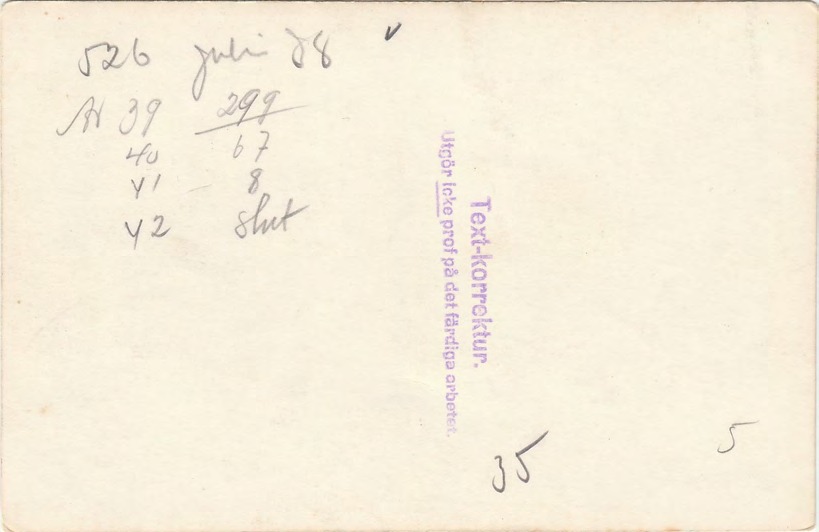 526 juli 38
År 39 299
40 67
41 8
42 slut
Text-korrektur.
Utgör icke prof på det färdiga arbetet.
35
5